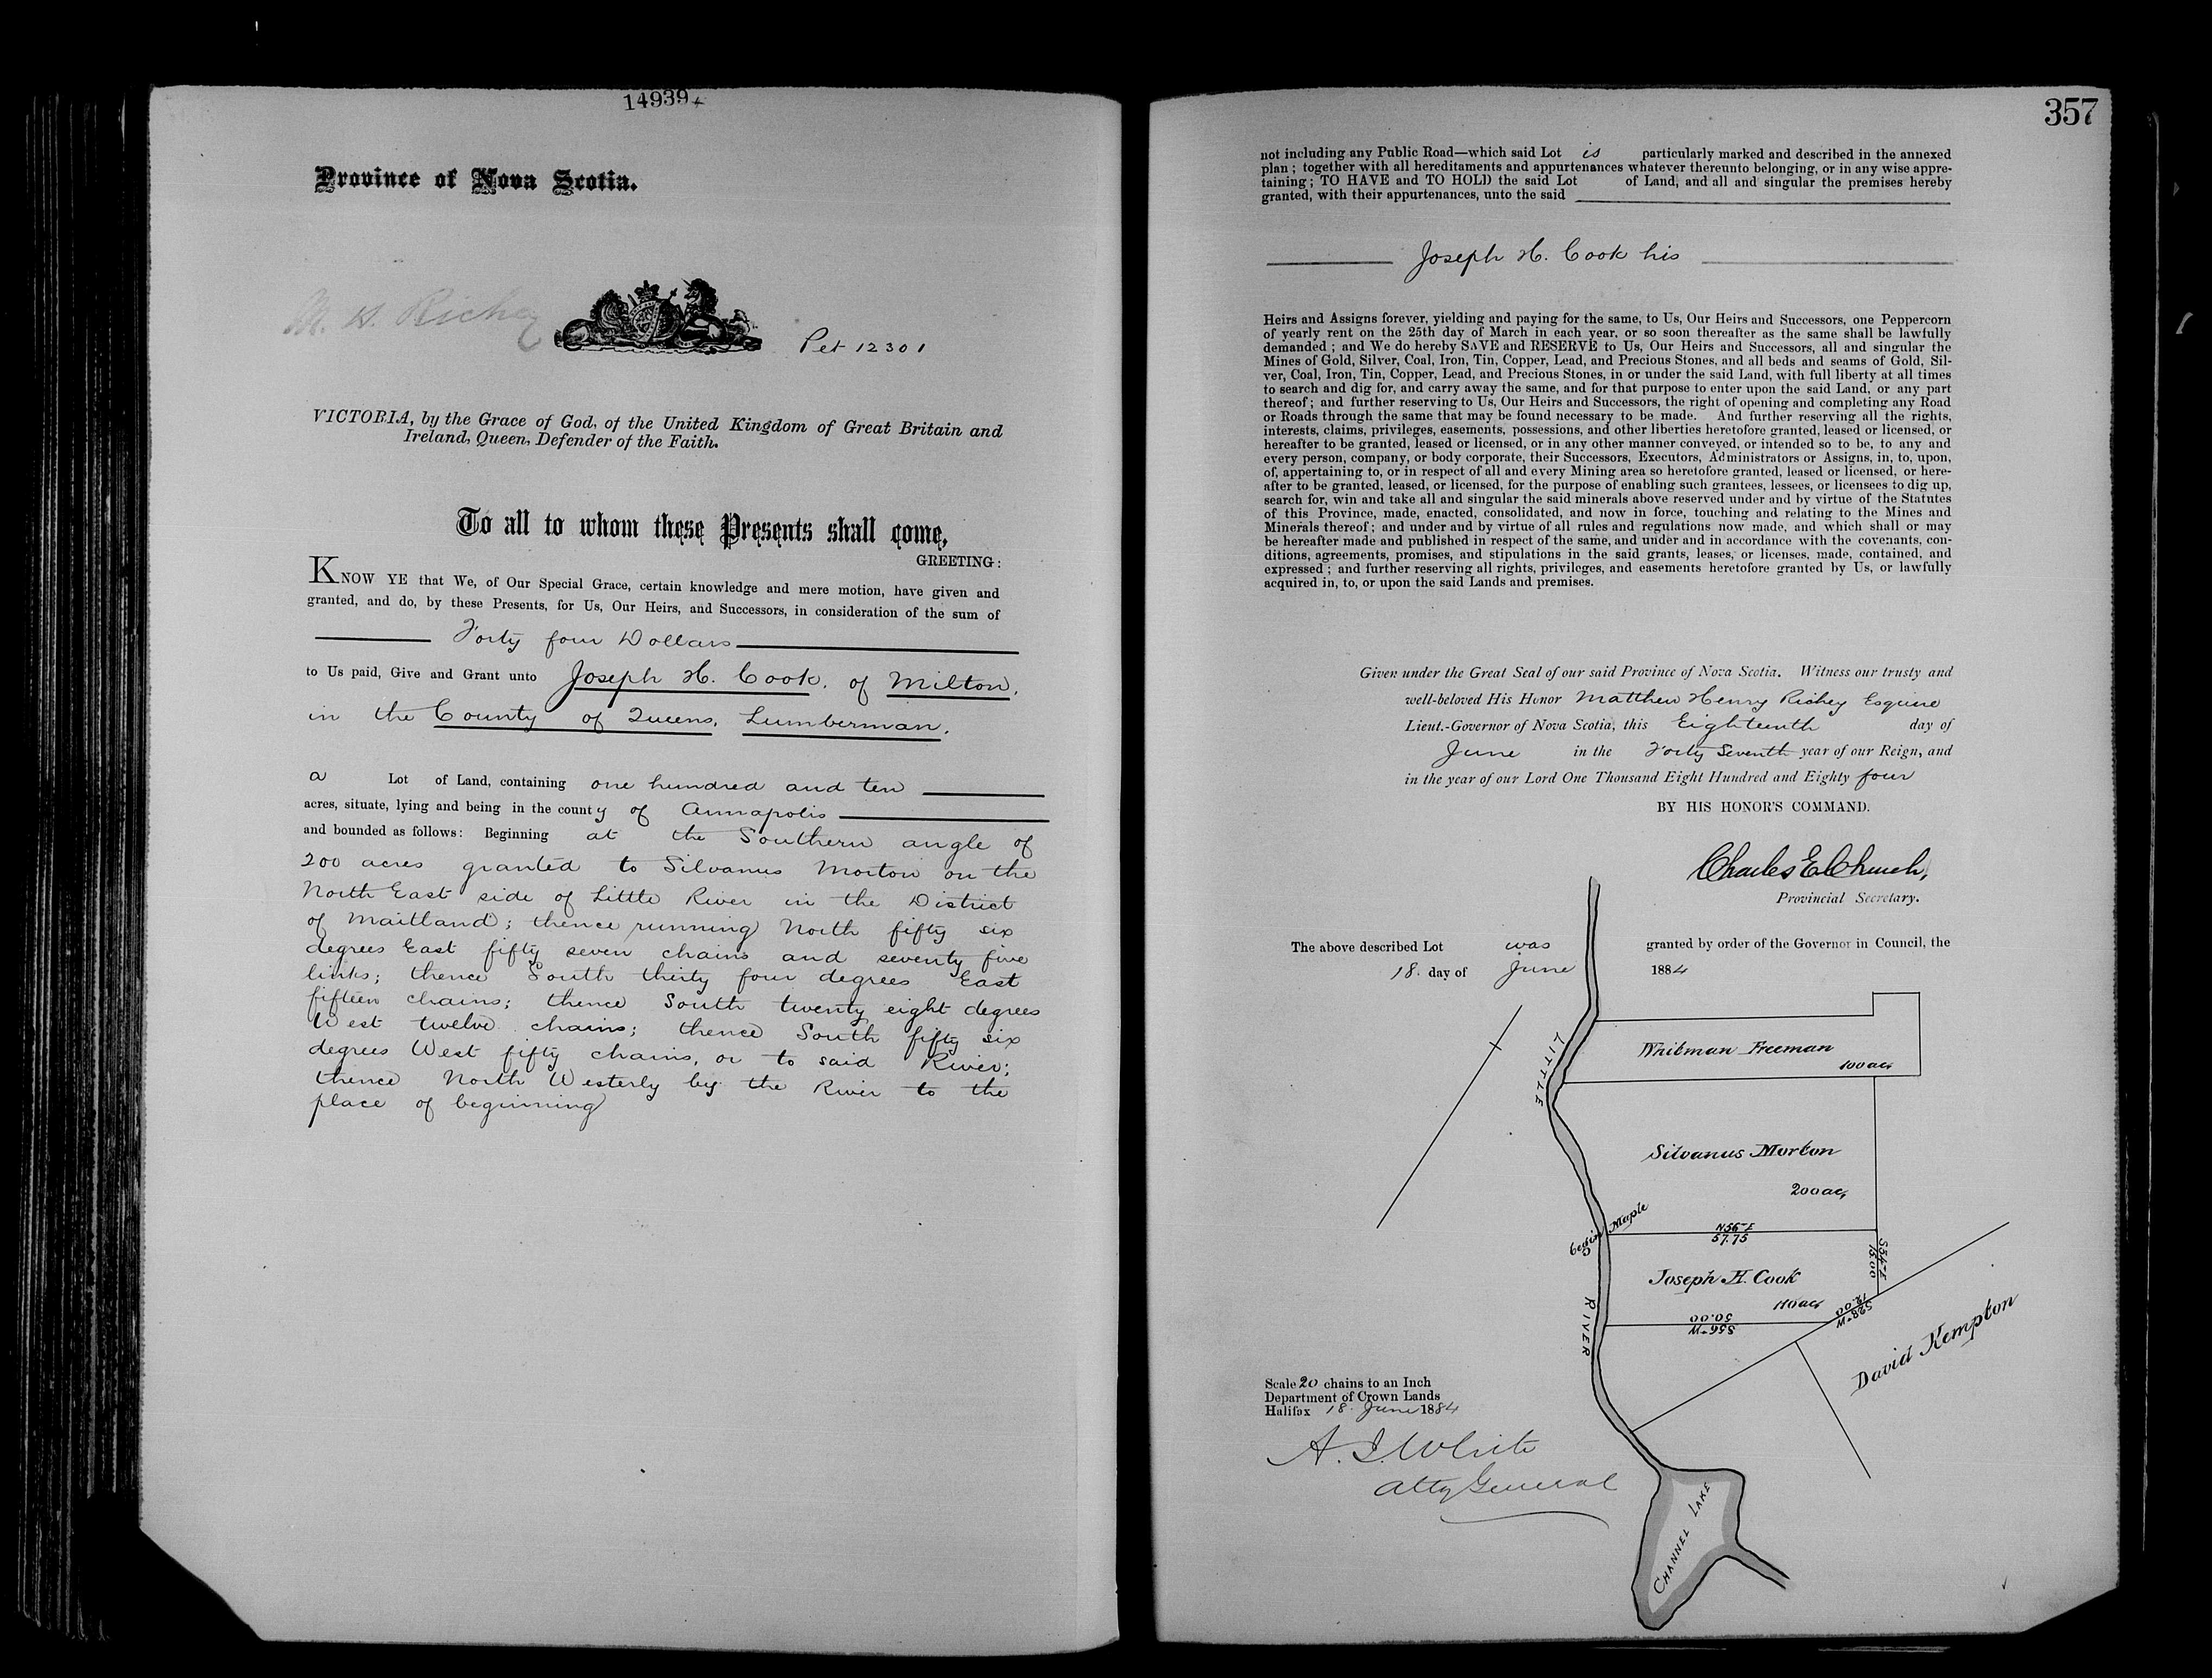 14939
Province of Nova Scotia.
M. H. Richey
Pet 12301
VICTORIA, by the Grace of God, of the United Kingdom of Great Britain and
Ireland, Queen, Defender of the Faith.
To all to whom these Presents shall come,
GREETING:
KNOW YE that We, of Our Special Grace, certain knowledge and mere motion, have given and
granted, and do, by these Presents, for Us, Our Heirs, and Successors, in consideration of the sum of
Forty four Dollars
to Us paid, Give and Grant unto Joseph H. Cook, of Milton,
in the County of Queens, Lumberman,
a Lot of Land, containing one hundred and ten
acres, situate, lying and being in the county of Annapolis
and bounded as follows: Beginning at the Southern angle of
200 acres granted to Silvanus Morton on the
North East side of Little River in the District
of Maitland; thence running North fifty six
degrees East fifty seven chains and seventy five
links; thence South thirty four degrees East
fifteen chains; thence South twenty eight degrees
West twelve chains; thence South fifty six
degrees West fifty chains, or to said River;
thence North Westerly by the River to the
place of beginning
357
not including any Public Road—which said Lot is particularly marked and described in the annexed
plan; together with all hereditaments and appurtenances whatever thereunto belonging, or in any wise appre-
taining; TO HAVE and TO HOLD the said Lot of Land, and all and singular the premises hereby
granted, with their appurtenances, unto the said
Joseph H. Cook his
Heirs and Assigns forever, yielding and paying for the same, to Us, Our Heirs and Successors, one Peppercorn
of yearly rent on the 25th day of March in each year, or so soon thereafter as the same shall be lawfully
demanded; and We do hereby SAVE and RESERVE to Us, Our Heirs and Successors, all and singular the
Mines of Gold, Silver, Coal, Iron, Tin, Copper, Lead, and Precious Stones, and all beds and seams of Gold, Sil-
ver, Coal, Iron, Tin, Copper, Lead, and Precious Stones, in or under the said Land, with full liberty at all times
to search and dig for, and carry away the same, and for that purpose to enter upon the said Land, or any part
thereof; and further reserving to Us, Our Heirs and Successors, the right of opening and completing any Road
or Roads through the same that may be found necessary to be made. And further reserving all the rights,
interests, claims, privileges, easements, possessions, and other liberties heretofore granted, leased or licensed, or
hereafter to be granted, leased or licensed, or in any other manner conveyed, or intended so to be, to any and
every person, company, or body corporate, their Successors, Executors, Administrators or Assigns, in, to, upon,
of, appertaining to, or in respect of all and every Mining area so heretofore granted, leased or licensed, or here-
after to be granted, leased, or licensed, for the purpose of enabling such grantees, lessees, or licensees to dig up,
search for, win and take all and singular the said minerals above reserved under and by virtue of the Statutes
of this Province, made, enacted, consolidated, and now in force, touching and relating to the Mines and
Minerals thereof; and under and by virtue of all rules and regulations now made, and which shall or may
be hereafter made and published in respect of the same, and under and in accordance with the covenants, con-
ditions, agreements, promises, and stipulations in the said grants, leases, or licenses, made, contained, and
expressed; and further reserving all rights, privileges, and easements heretofore granted by Us, or lawfully
acquired in, to, or upon the said Lands and premises.
Given under the Great Seal of our said Province of Nova Scotia. Witness our trusty and
well-beloved His Honor Matthew Henry Richey Esquire
Lieut.-Governor of Nova Scotia, this Eighteenth day of
June in the Forty Seventh year of our Reign, and
in the year of our Lord One Thousand Eight Hundred and Eighty four
BY HIS HONOR'S COMMAND.
Charles E Church,
Provincial Secretary.
The above described Lot was granted by order of the Governor in Council, the
18. day of June 1884
LITTLE
Whitman Freeman
100 ac.
Silvanus Morton
200 ac.
Begin Maple
N56°E
57.75
S34°E
15.00
Joseph H. Cook
110 ac.
S28°W
12.00
S56°W
50.00
RIVER
David Kempton
Scale 20 chains to an Inch
Department of Crown Lands
Halifax 18. June 1884
A. J. White
Atty General
CHANNEL LAKE